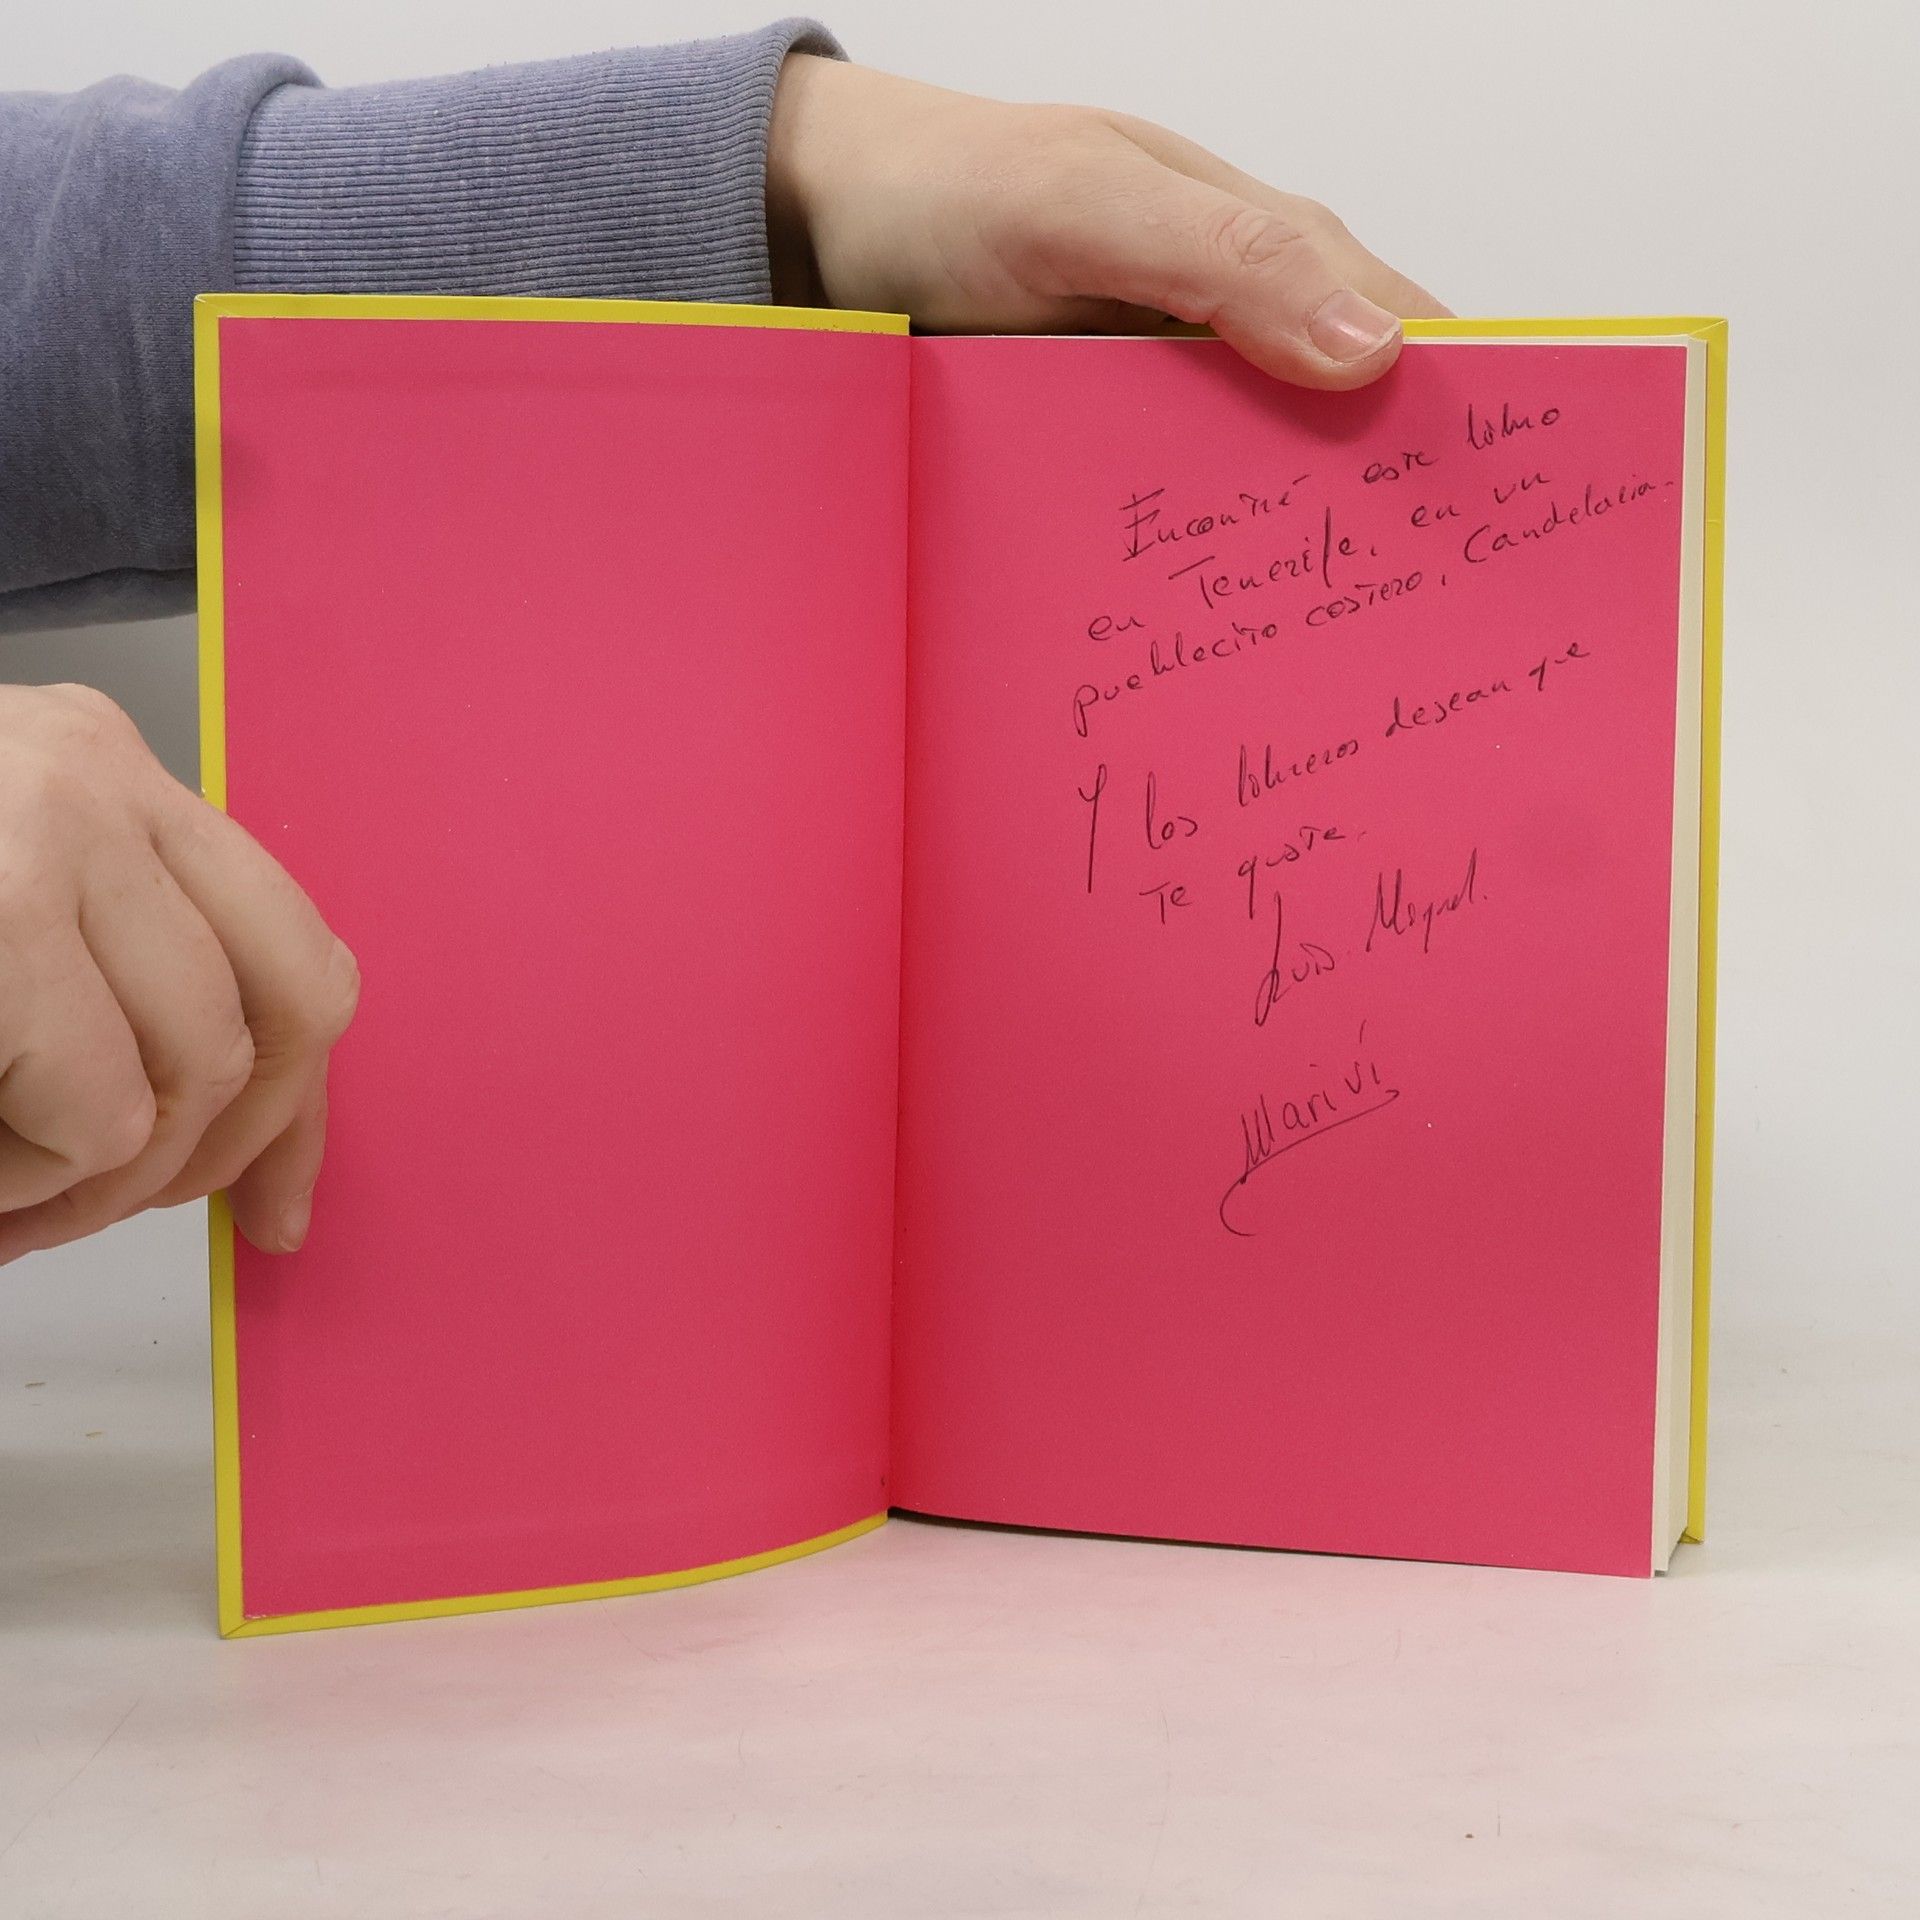 Encontré este libro
en Tenerife, en un
pueblecito costero, Candelaria.
Y los libreros desean que
te guste.
Luis Miguel.
Mariví